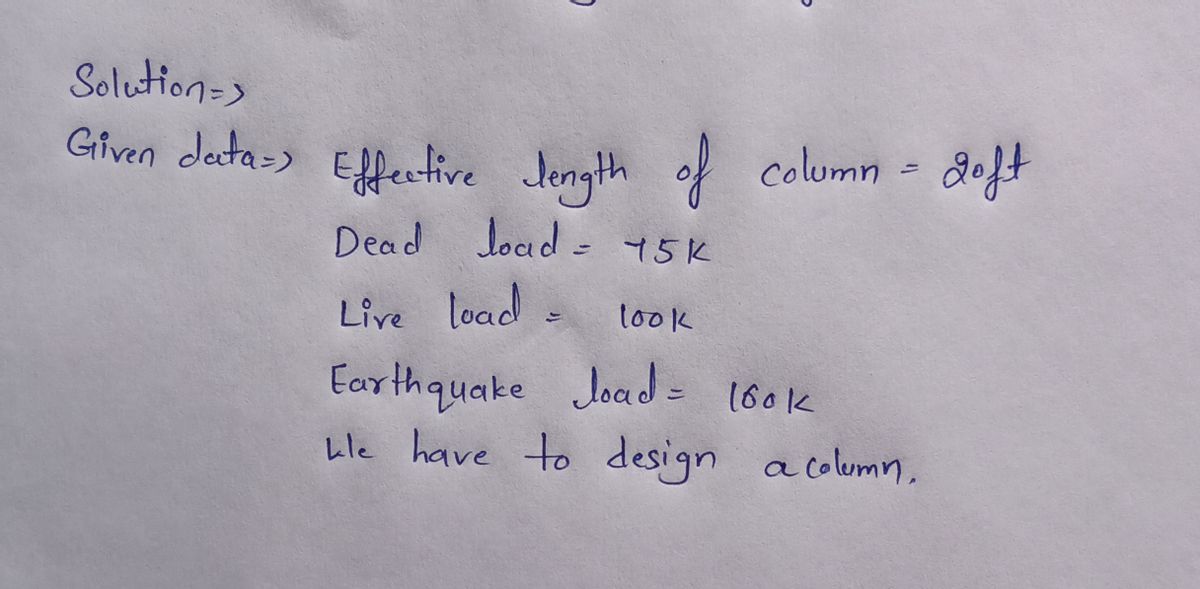 Solution=>
Given data=> Effective length of column = 20ft
Dead load = 75K
Live load = 100K
Earthquake load = 160K
We have to design a column.